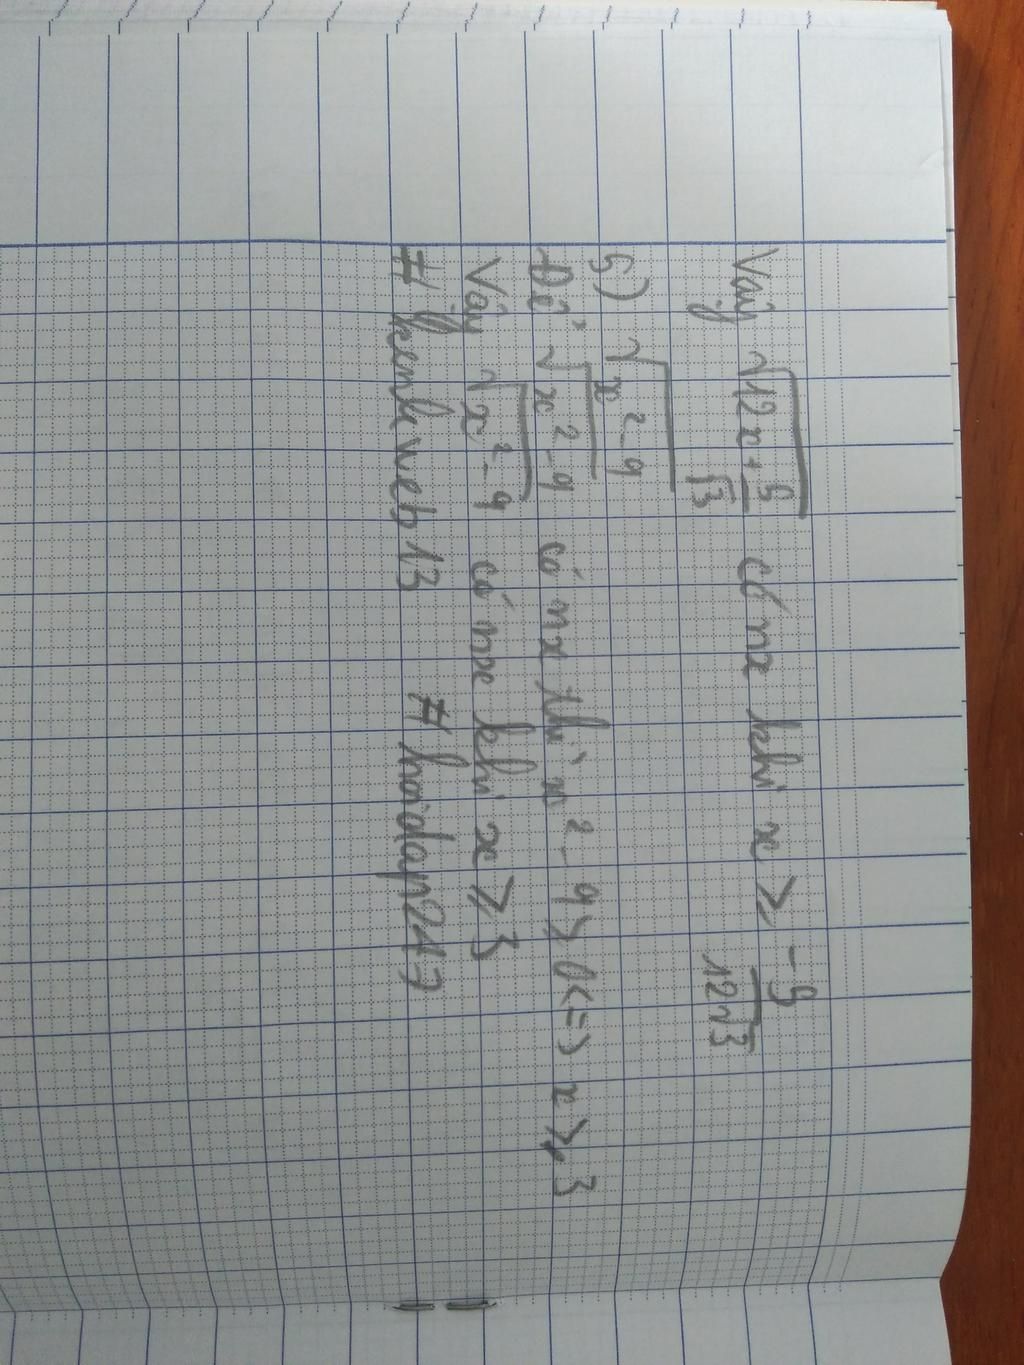 Vậy √12x + 5/√3 có nx khi x ⩾ -5/12√3
5) √x² - 9
Để √x² - 9 có nx thì x² - 9 ⩾ 0 <=> x ⩾ 3
Vậy √x² - 9 có nx khi x ⩾ 3
#kenhweb13 #hoidap247